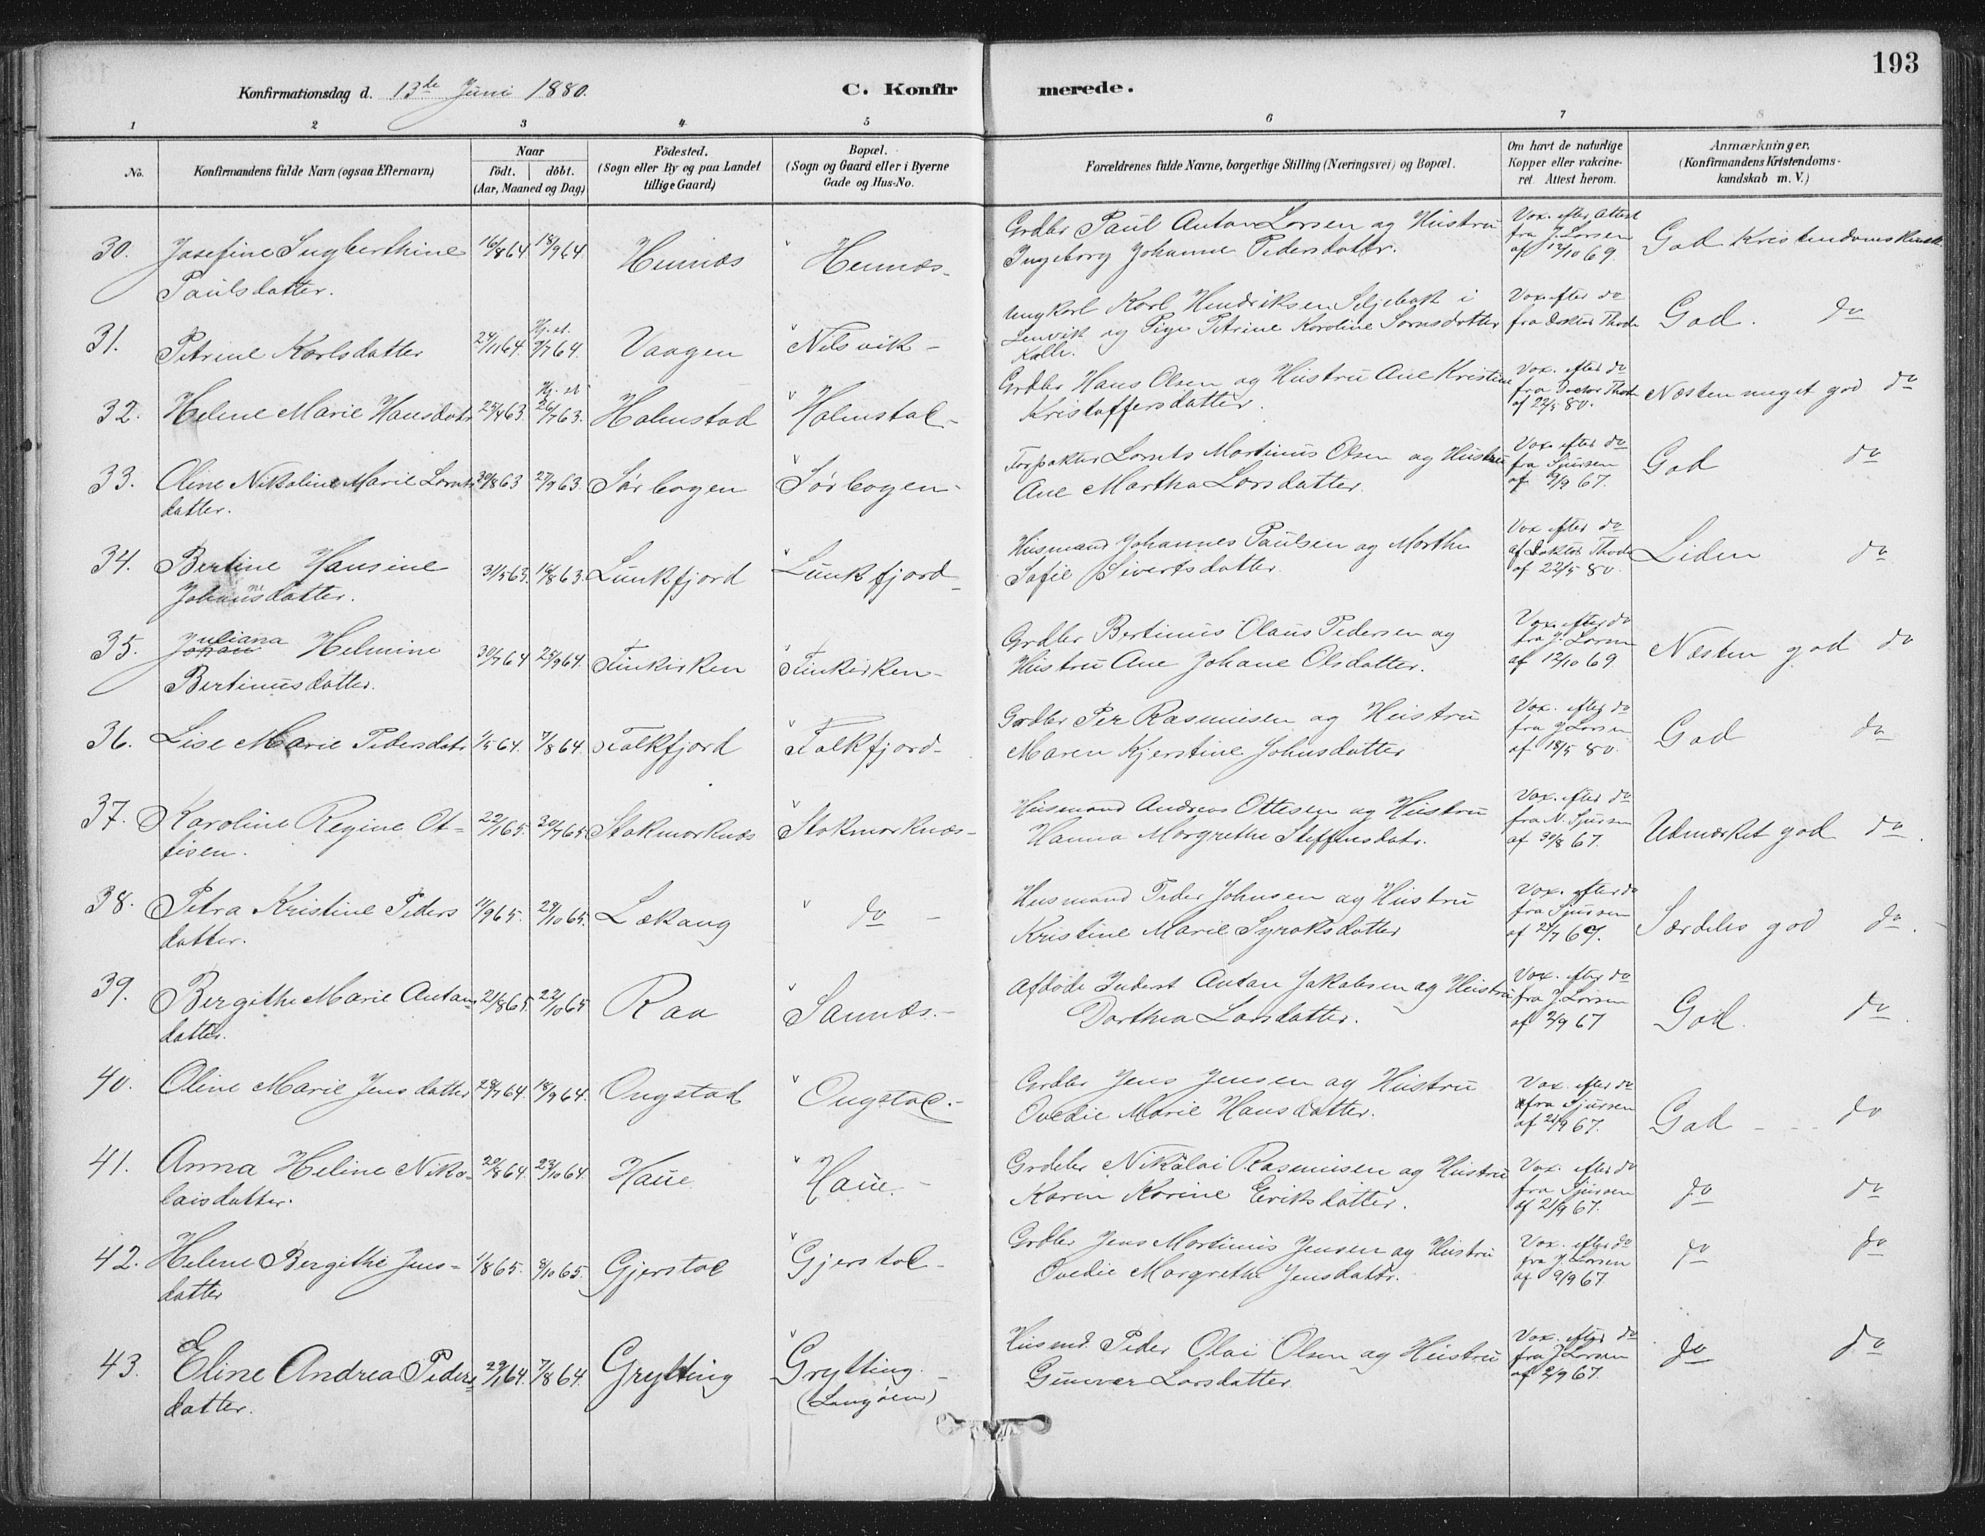 193
Konfirmationsdag d. 13de Juni 1880. C. Konfir merede.
1 2 3 4 5 6 7 8
No. Konfirmandens fulde Navn (ogsaa Efternavn) Naar födt. döbt. (Aar, Maaned og Dag) Födested. (Sogn eller By og paa Landet tillige Gaard) Bopæl. (Sogn og Gaard eller i Byerne Gade og Hus-No. Forældrenes fulde Navne, borgerlige Stilling (Næringsvei) og Bopæl. Om havt de naturlige Kopper eller vakcineret. Attest herom. Anmærkninger. (Konfirmandens Kristendomskundskab m. V.)
30. Josefine Ingberthine 16/8 64 18/9 64 Hennæs " Hennæs- Grdbr Paul Anton Larsen og Hustru Vax. efter Attest fra J. Larsen God Kristendomskundsk
Paulsdatter. Ingeborg Johanne Pedersdatter. af 12/10 69.
31. Petrine Karlsdatter 24/1 64. Hj. d. 3/7 64. Vaagen " Nilsvik- Ungkarl Karl Hendriksen Seljebak i Vax efter do God. do
Lenvik og Pige Petrine Karoline fra Doktor Thode
32. Helene Marie Hansdatr 25/4 63. Hj. d. 26/7 63. Halmstad " Halmstad- Grdbr Hans Olsen og Hustru Ane Kristine Vax. efter do fra Doctor Thode Næsten meget god do
Kristoffersdatter. af 22/5 80.
33. Oline Nikoline Marie Lornts 30/8 63 27/9 63. Sørbogen " Sørbogen- Forpakter Lornts Martinus Olsen og Hustru Vax. efter do fra Sjursen God do
datter. Ane Martha Larsdatter. af 9/9 67.
34. Bertine Hansine 31/5 63. 16/8 63. Lunkfjord " Lunkfjord- Husmand Johannes Paulsen og Marthe Vax efter do af Doktor Thode Liden do
Johannsdatter. Sofie Sivertsdatter. af 22/5 80.
35. Juliana Helmine 30/7 64 25/9 64. Finkirken " Finkirken- Grdbr Bertinus Olaus Pedersen og Vax. efter do fra J. Larsen Næsten god do
Bertinusdatter. Hustru Ane Johane Olsdatter. af 12/10 69.
36. Lise Marie Pedersdatr 1/5 64. 7/8 64. Falkfjord " Falkfjord- Grdbr Per Rasmussen og Hustru Vax. efter do fra J Larsen God do
Maren Kjerstine Johnsdatter af 18/5 80.
37. Karoline Regine Ot- 22/1 65. 30/7 65. Stokmarknæs " Stokmarknæs- Husmand Andreas Ottesen og Hustru Vax. efter do fra N. Sjursen Udmærket god do
tesen. Hanna Margrethe Steffensdatr. af 30/8 67.
38. Petra Kristine Peders 11/9 65. 29/10 65. Lækang " do - Husmand Peder Johnsen og Hustru Vax. efter do fra Sjursen Særdeles god do
datter. Kristine Marie Syraksdatter af 21/7 67.
39. Bergithe Marie Antons 21/8 65. 22/10 65 Raa " Sannæs.- Afdøde Inderst Anton Jakobsen og Hustru Vax. efter do fra J. Larsen God. do
datter. Dorthea Larsdatter. af 2/9 67
40. Oline Marie Jensdatter 28/7 64. 18/9 64. Ongstad " Ongstad.- Grdbr Jens Jensen og Hustru Vax. efter do fra Sjursen God do
Ovedie Marie Hansdatter. af 21/9 67.
41. Anna Heline Niko- 20/8 64 23/10 64. Haue " Haue- Grdbr Nikolai Rasmusen og Hustru Vax. efter do fra Sjursen do do
laisdatter. Karen Karine Eriksdatter. af 21/9 67.
42. Helene Bergithe Jens- 1/8 65. 8/10 65. Gjerstad " Gjerstad- Grdbr Jens Martinus Jensen og Hustru Vax. efter do fra J. Larsen do do
datter Ovedie Margrethe Jensdattr. af 9/9 67
43. Eline Andrea Peders 29/1 64. 7/8 64. Grytting " Grytting.- Husmd Peder Olai Olsen og Hustru Vax. efter do fra J Larsen do do
datter. (Langøen) Gunver Larsdatter af 2/9 67.